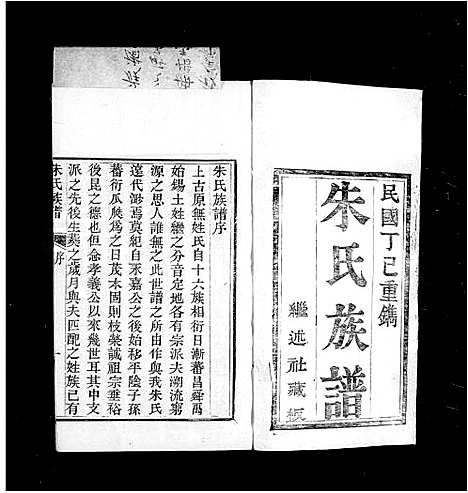 民國丁巳重鐫
朱氏族譜
繼述社藏板
朱氏族譜序
上古原無姓氏自十六族相衍日漸蕃昌舜禹
始錫土姓巒之分音定地各有宗派夫溯流窮
源之思人誰無之此世譜之所由作與我朱氏
遠代渺焉莫紀自永嘉公之後始移平陰子孫
蕃衍瓜瓞為之日茂本固則枝榮誠祖宗垂裕
後昆之德也但念孝義公以來幾世耳其中支
派之先後生葬之歲月與夫匹配之姓族已有
朱氏族譜
序
一